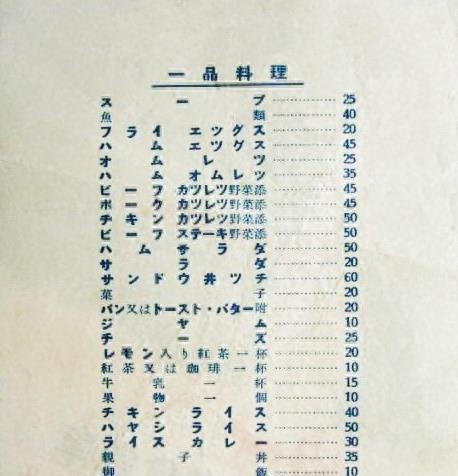 一品料理
スープ 25
魚類 40
フライエツグス 20
ハムエツグス 45
オムレツ 25
ハムオムレツ 45
ビーフカツレツ野菜添 45
ポークカツレツ野菜添 45
チキンカツレツ野菜添 50
ビーフステーキ野菜添 50
ハムサラダ 50
サラダ 20
サンドウ井ツチ 60
菓子 20
パン又はトースト・バター附 20
ジヤム 10
チーズ 25
レモン入り紅茶一杯 20
紅茶又は珈琲一杯 10
牛乳一杯 15
果物一個 10
チキンライス 40
ハヤシライス 50
ライスカレー 30
親子丼 35
御飯 10